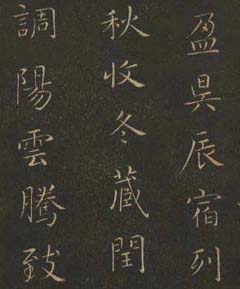 盈昃辰宿列
秋收冬藏閏
調陽雲騰致